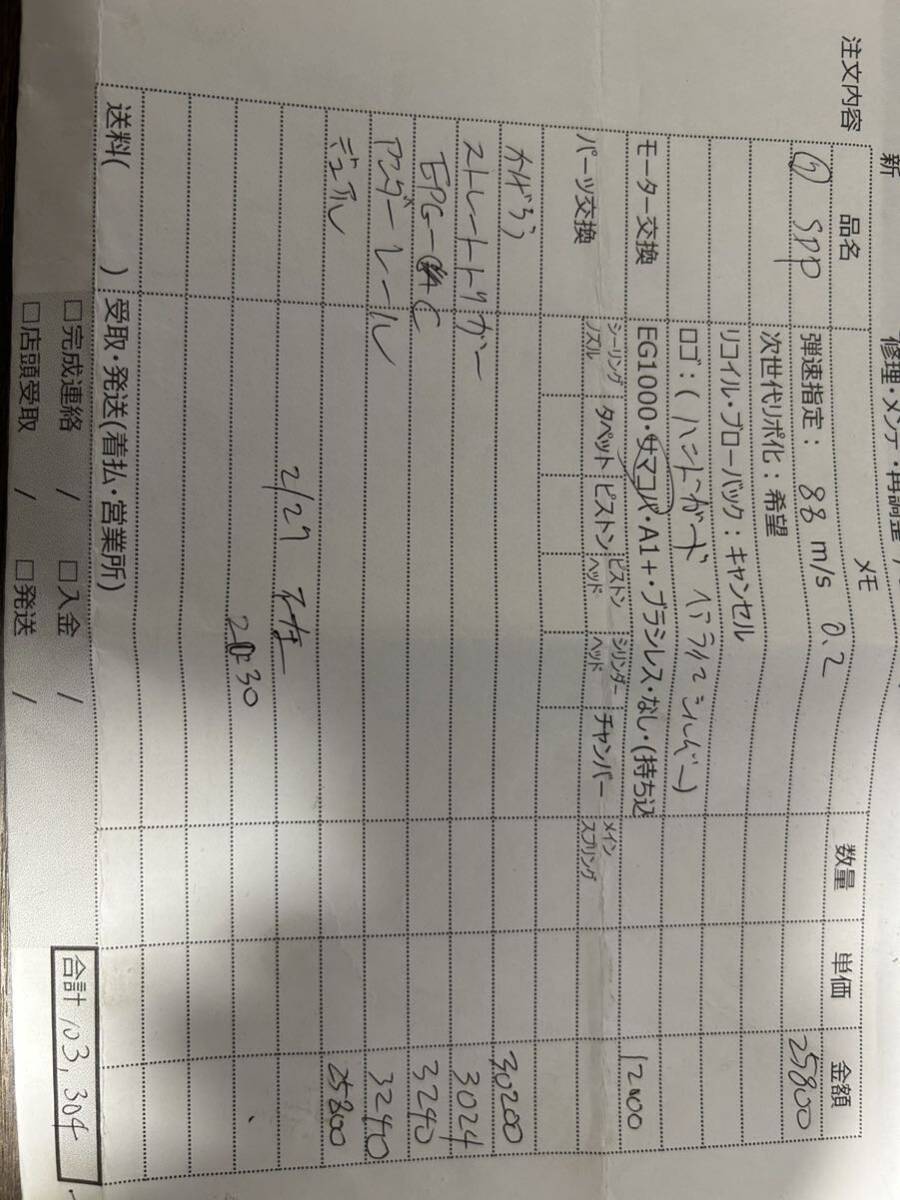 注文内容
新
修理・メンテ・再調整
品名 メモ 数量 単価 金額
SPP 弾速指定： 88 m/s 0.2 25800
次世代リポ化：希望
リコイル・ブローバック：キャンセル
ロゴ：(ハンドガード
モーター交換 EG1000・サマコバ・A1+・ブラシレス・なし・(持ち込 12000
パーツ交換 シーリングノズル タペット ピストン ピストンヘッド シリンダーヘッド チャンバー メインスプリング
かげろう 30200
ストレートトリガー 3024
3240
アンダーレール 3240
デュアル 25800
2/27
30
送料( ) 受取・発送(着払・営業所)
合計 103,304
□完成連絡 / □入金 /
□店頭受取 / □発送 /